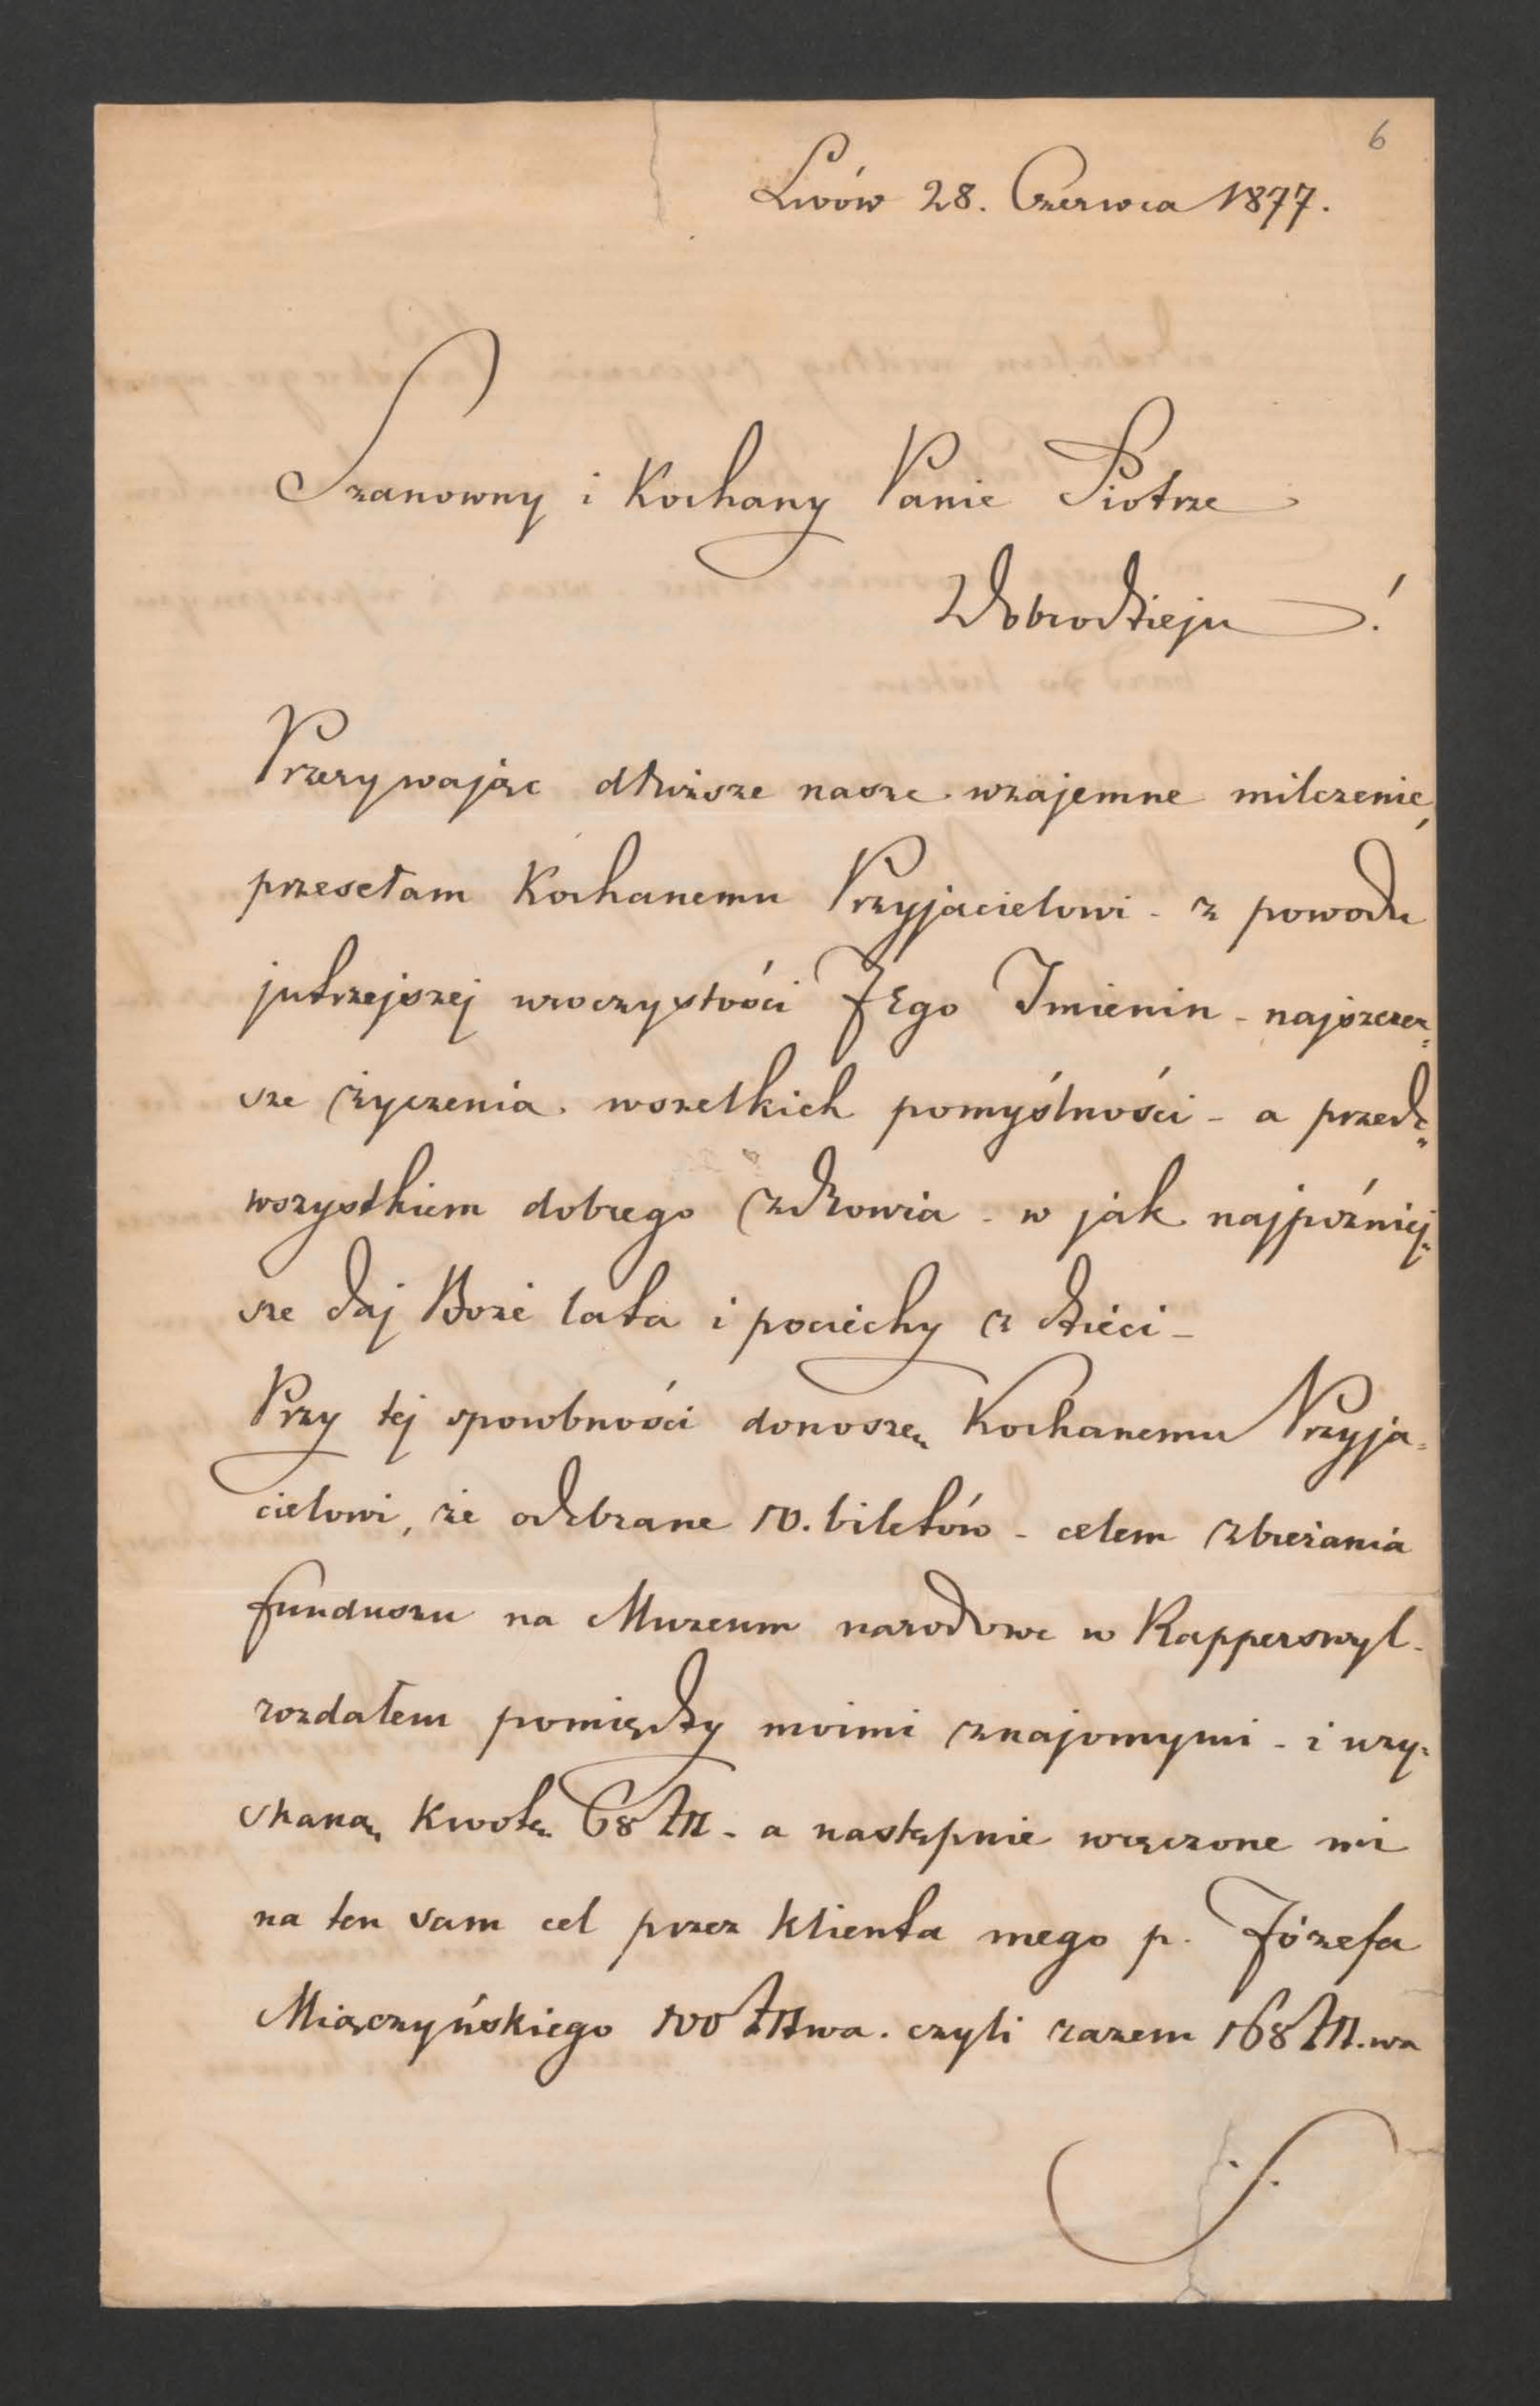 6
Lwów 28. Czerwca 1877.
Szanowny i Kochany Panie Piotrze
Dobrodzieju !
Przerywając dłuższe nasze wzajemne milczenie,
przesełam Kochanemu Przyjacielowi - z powodu
jutrzejszej uroczystości JEgo Imienin - najszczer=
sze życzenia wszelkich pomyślności - a przede=
wszystkiem dobrego zdrowia - w jak najpóźniej=
sze daj Boże lata i pociechy z dzieci -
Przy tej sposobności donoszę Kochanemu Przyja=
cielowi, że odebrane 10. biletów - celem zbierania
funduszu na Muzeum narodowe w Rapperswyl -
rozdałem pomiędzy moimi znajomymi - i uzy=
skaną kwotę 68 Zł - a następnie wręczone mi
na ten sam cel przez klienta mego p. Józefa
Miączyńskiego 100 Zł wa. czyli razem 168 Zł. wa